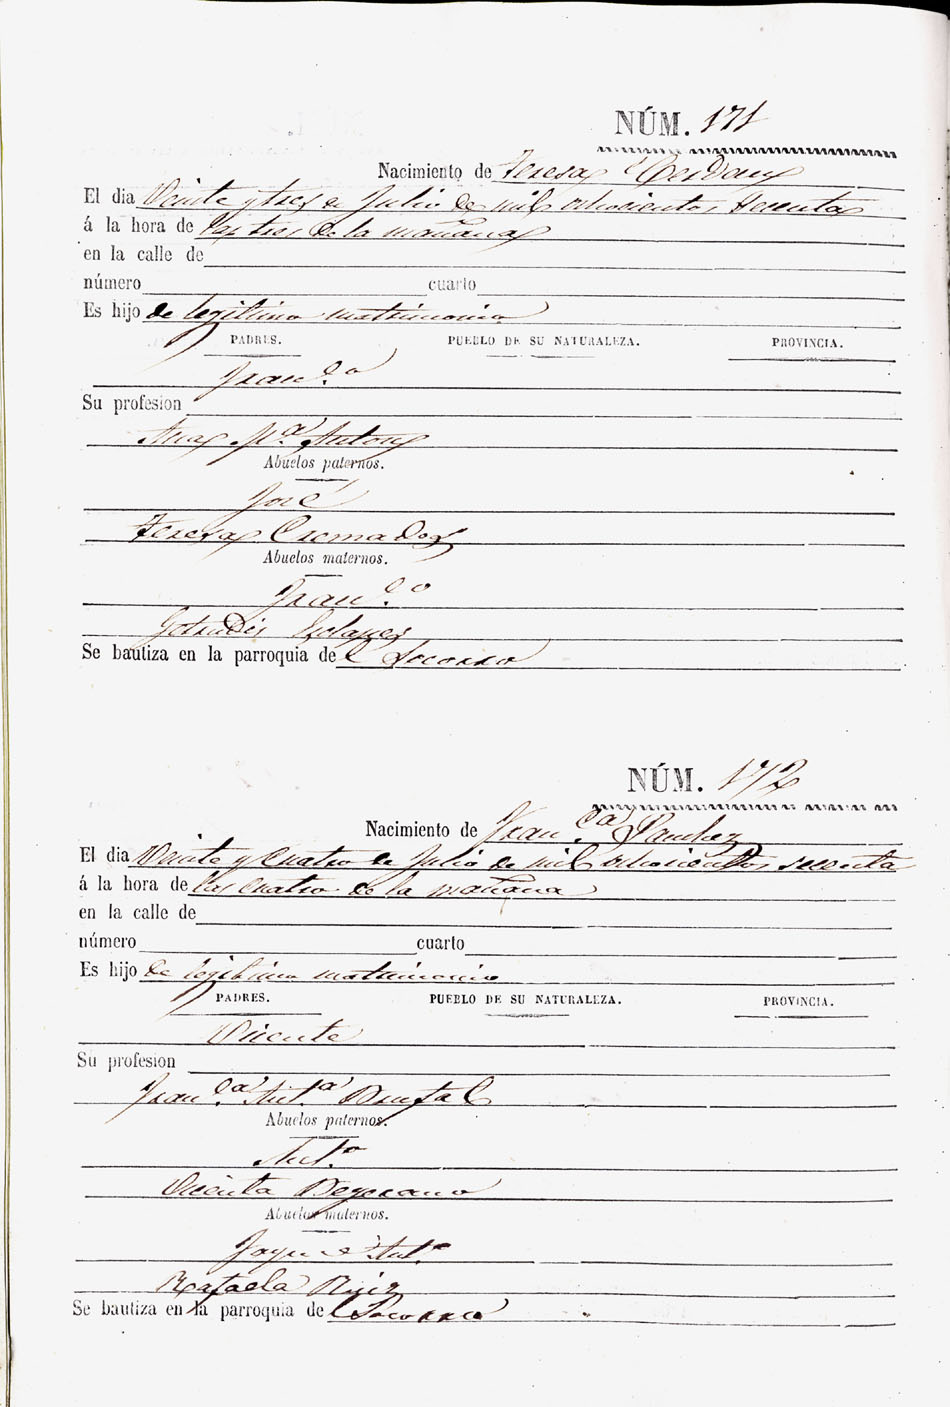 NÚM. 171
Nacimiento de Teresa Cerdan
El dia Veinte y tres de Julio de mil ochocientos sesenta
á la hora de las tres de la mañana
en la calle de
número cuarto
Es hijo de legitimo matrimonio
PADRES. PUEBLO DE SU NATURALEZA. PROVINCIA.
Fran.co
Su profesion
Ana M.a Anton
Abuelos paternos.
José
Teresa Cremades
Abuelos maternos.
Fran.co
Getrudis
Se bautiza en la parroquia de el Socorro
NÚM. 172
Nacimiento de Fran.ca Sanchez
El dia Veinte y cuatro de Julio de mil ochocientos sesenta
á la hora de las cuatro de la mañana
en la calle de
número cuarto
Es hijo de legitimo matrimonio
PADRES. PUEBLO DE SU NATURALEZA. PROVINCIA.
Vicente
Su profesion
Fran.ca Ant.a Brufal
Abuelos paternos.
Ant.o
Vicenta
Abuelos maternos.
Ant.o
Rafaela Ruiz
Se bautiza en la parroquia de el Socorro